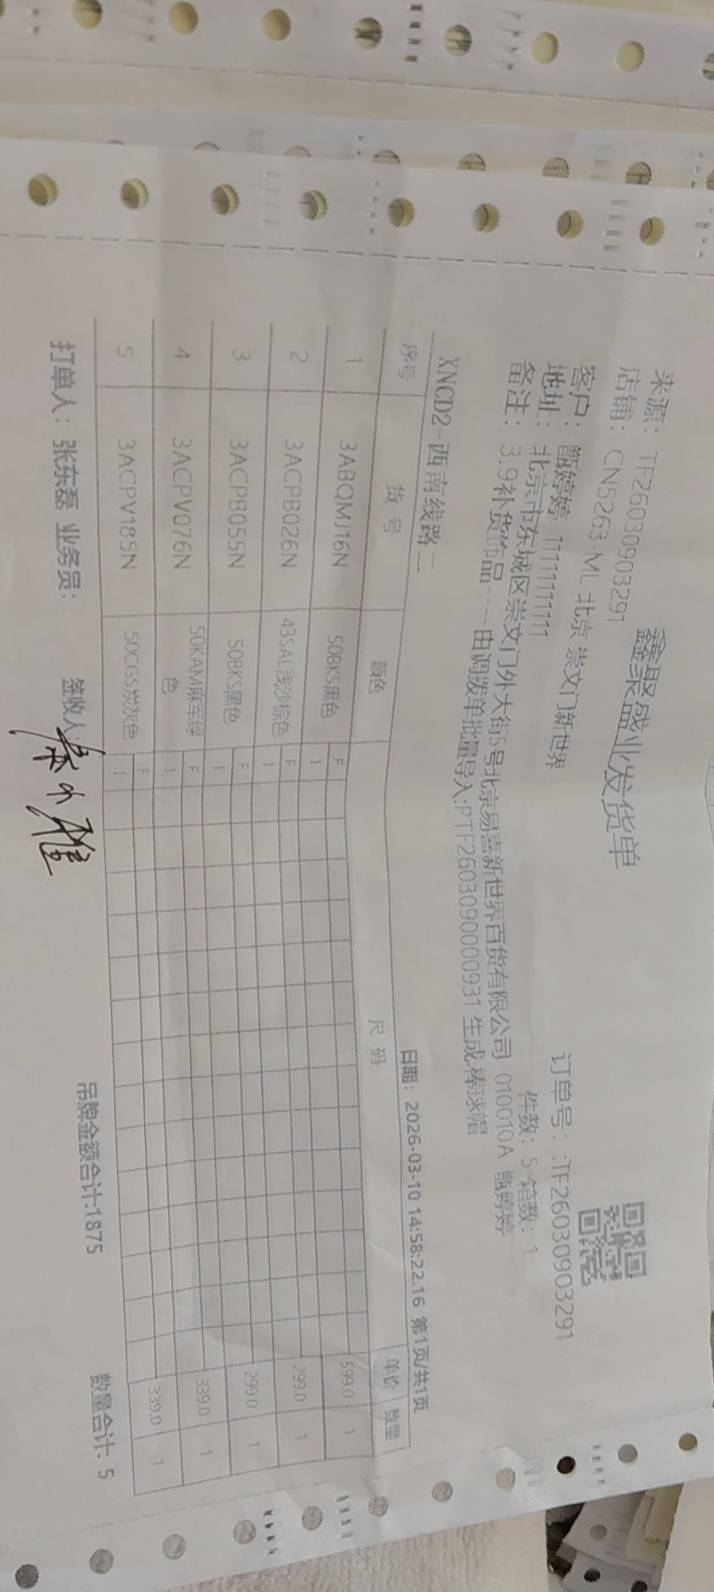 鑫聚盛业发货单
来源: TF26030903291
订单号: :TF26030903291
店铺: CN5263-ML 北京 崇文门新世界
件数: 5 箱数: 1
客户: 甑婷婷 11111111111
地址: 北京市东城区崇文门外大街5号北京易喜新世界百货有限公司 010010A 甑婷婷
备注: 3.9补货饰品----由调拨单批量导入:PTF2603090000931 生成,棒球帽
XNCD2-西南线路二
日期: 2026-03-10 14:58:22.16 第1页/共1页
序号 货号 颜色 尺码 单价 数量
1 3ABQMJ16N 50BKS黑色 F 1 599.0 1
2 3ACPB026N 43SAL浅沙棕色 F 1 299.0 1
3 3ACPB055N 50BKS黑色 F 1 299.0 1
4 3ACPV076N 50KAM麻军绿色 F 1 339.0 1
5 3ACPV185N 50CGS炭灰色 F 1 339.0 1
吊牌金额合计:1875 数量合计: 5
打单人: 张东磊 业务员: 签收人: